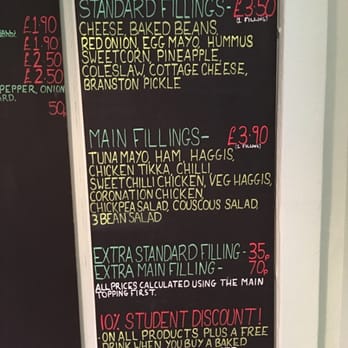 £1.90
£1.90
£2.50
£2.50
PEPPER, ONION
ARD.
50p
STANDARD FILLINGS - £3.50
(1 FILLING)
CHEESE, BAKED BEANS,
RED ONION, EGG MAYO, HUMMUS
SWEETCORN, PINEAPPLE,
COLESLAW, COTTAGE CHEESE,
BRANSTON PICKLE
MAIN FILLINGS - £3.90
(1 FILLING)
TUNA MAYO, HAM, HAGGIS,
CHICKEN TIKKA, CHILLI
SWEET CHILLI CHICKEN, VEG HAGGIS,
CORONATION CHICKEN,
CHICKPEA SALAD, COUSCOUS SALAD,
3 BEAN SALAD
EXTRA STANDARD FILLING - 35p
EXTRA MAIN FILLING - 70p
ALL PRICES CALCULATED USING THE MAIN
TOPPING FIRST.
10% STUDENT DISCOUNT!
- ON ALL PRODUCTS PLUS A FREE
DRINK WHEN YOU BUY A BAKED